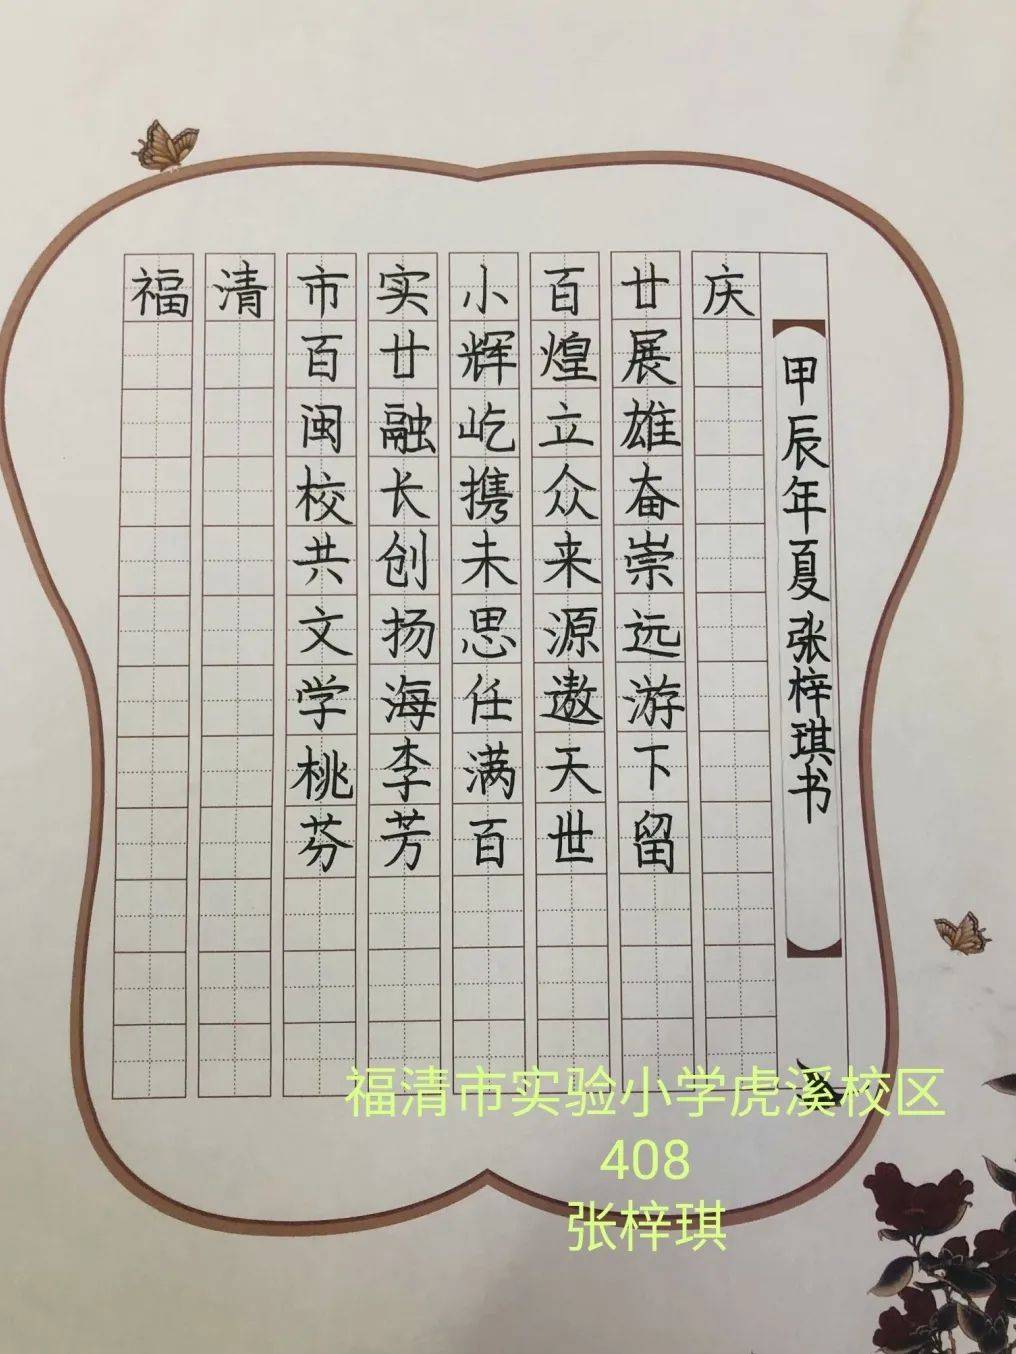 福清市实小百廿庆
百廿辉煌展
闽融屹立雄
校长携众奋
共创未来崇
文扬思源远
学海任遨游
桃李满天下
芬芳百世留
甲辰年夏张梓琪书
福清市实验小学虎溪校区
408
张梓琪